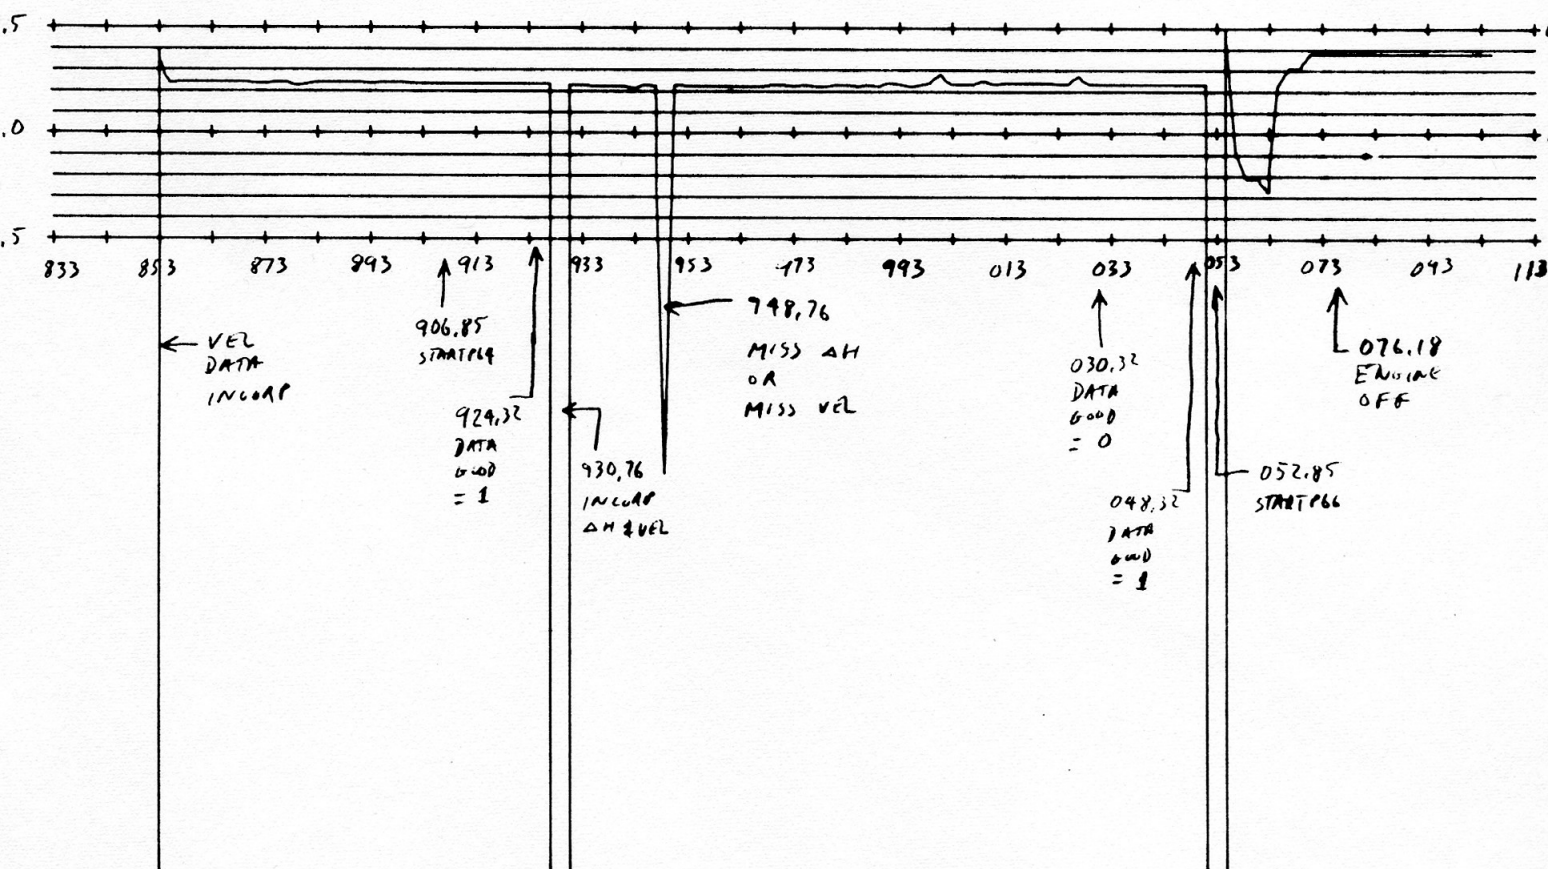 .5
.0
.5
833 853 873 893 913 933 953 973 993 013 033 053 073 093 113
VEL
DATA
INCORP
906.85
STARTP64
924.32
DATA
GOOD
= 1
930.76
INCORP
ΔH & VEL
948.76
MISS ΔH
OR
MISS VEL
030.32
DATA
GOOD
= 0
048.32
DATA
GOOD
= 1
052.85
STARTP66
076.18
ENGINE
OFF